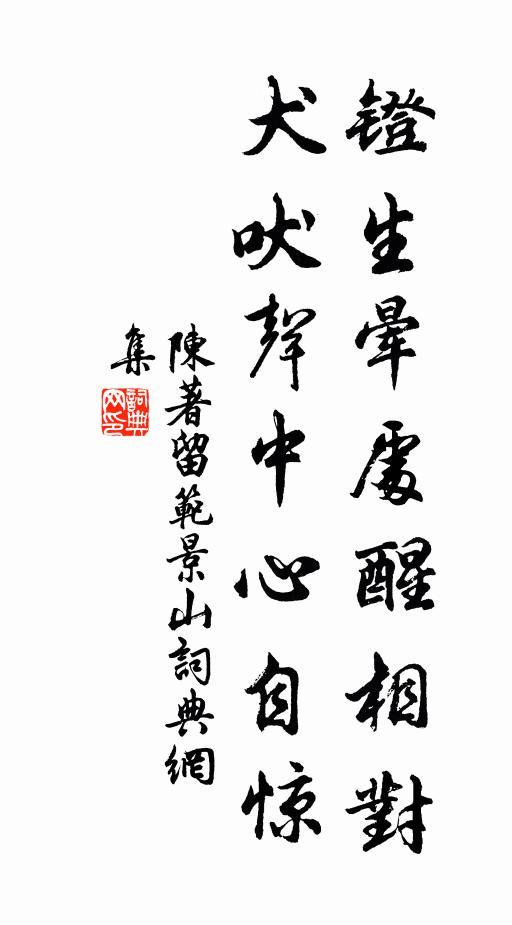 鐙生暈處醒相對
犬吠聲中心自惊
陳著留範景山詞典網
集
詞典网印